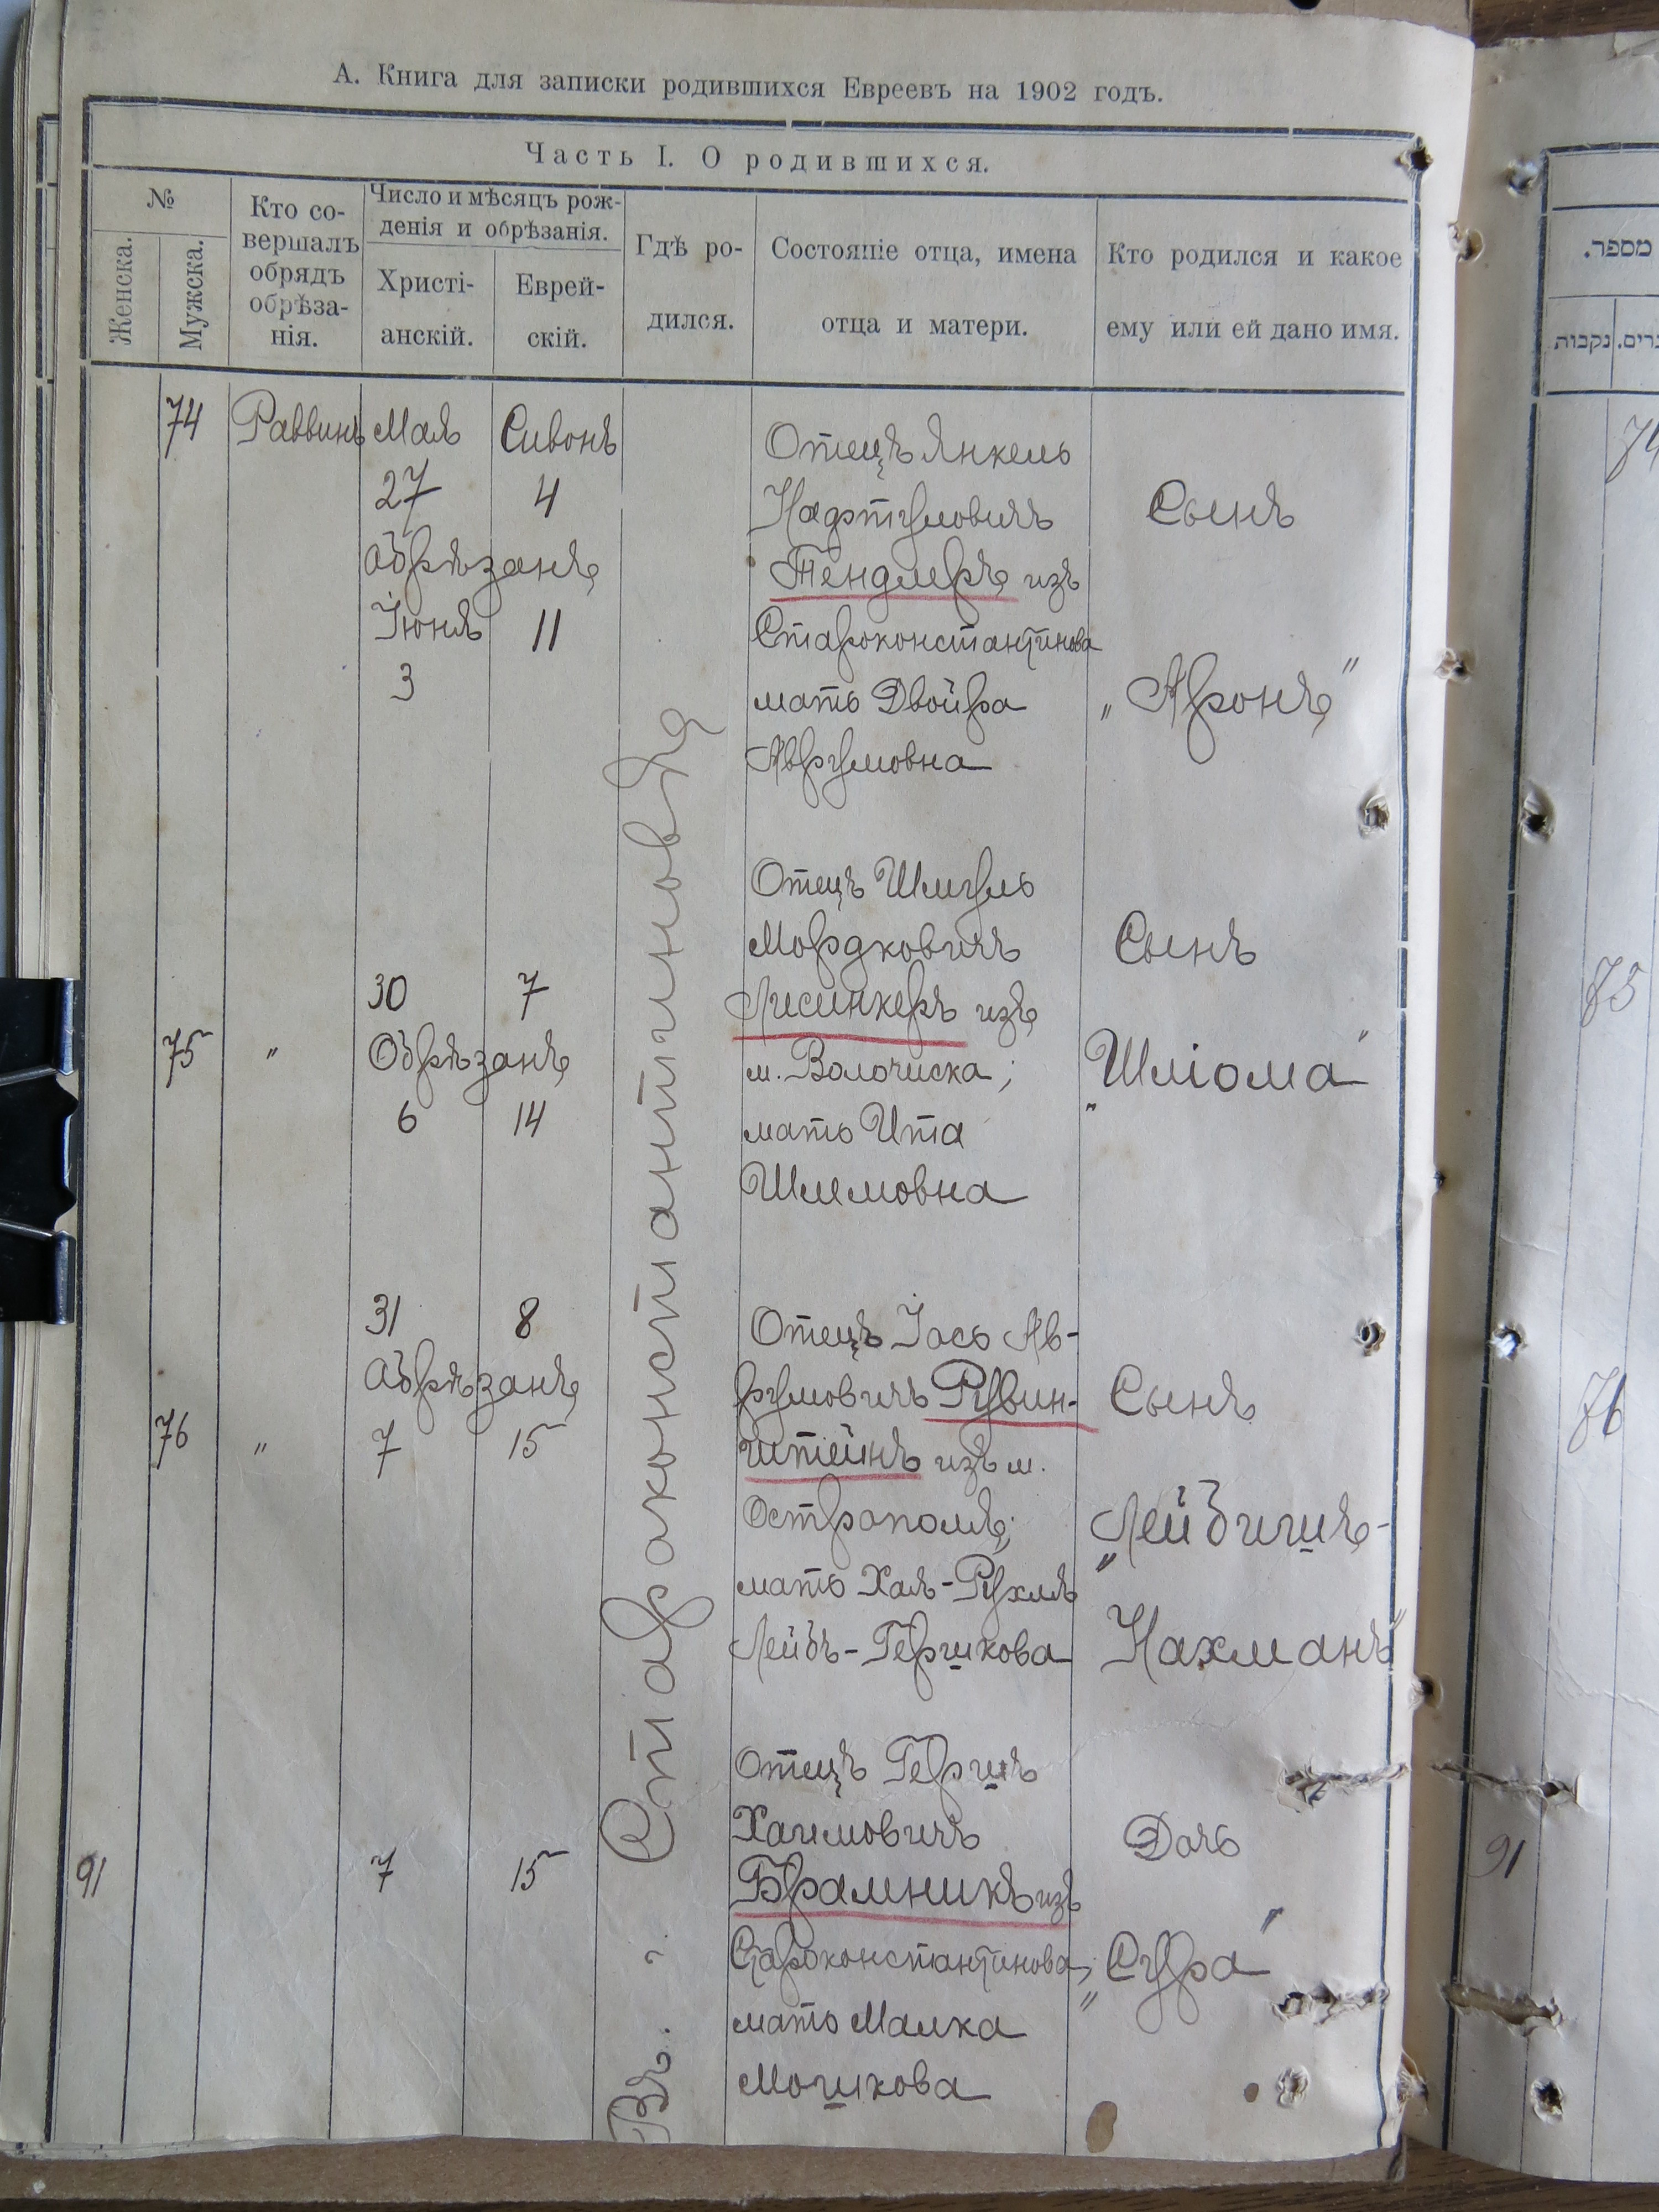 А. Книга для записки родившихся Евреевъ на 1902 годъ.
Часть I. О родившихся.
№
Женска.
Мужска.
Кто со-
вершалъ
обрядъ
обрѣза-
нія.
Число и мѣсяцъ рож-
денія и обрѣзанія.
Христі-
анскій.
Еврей-
скій.
Гдѣ ро-
дился.
Состояніе отца, имена
отца и матери.
Кто родился и какое
ему или ей дано имя.
Въ г. Староконстантиновѣ
74 Раввинъ Мая Сивонъ
27 4
Обрѣзанъ
Іюня 11
3
Отецъ Янкель
Нафтуловичъ
Тендлеръ изъ
Староконстантинова
мать Двойра
Аврумовна
Сынъ
„Аронъ"
75 „
30 7
Обрѣзанъ
6 14
Отецъ Шмуль
Мордковичъ
Лисинкеръ изъ
м. Волочиска;
мать Ита
Шлемовна
Сынъ
„Шліома"
76 „
31 8
Обрѣзанъ
7 15
Отецъ Іось Ав-
румовичъ Рувин-
штейнъ изъ м.
Острополя;
мать Хая-Рухля
Лейбъ-Гершкова
Сынъ
„Лейбишъ-
Нахманъ"
91
7 15
Отецъ Гершъ
Хаимовичъ
Брамникъ изъ
Староконстантинова;
мать Малка
Мошкова
Дочь
„Сура"
מספר.
נקבות
74
75
76
91